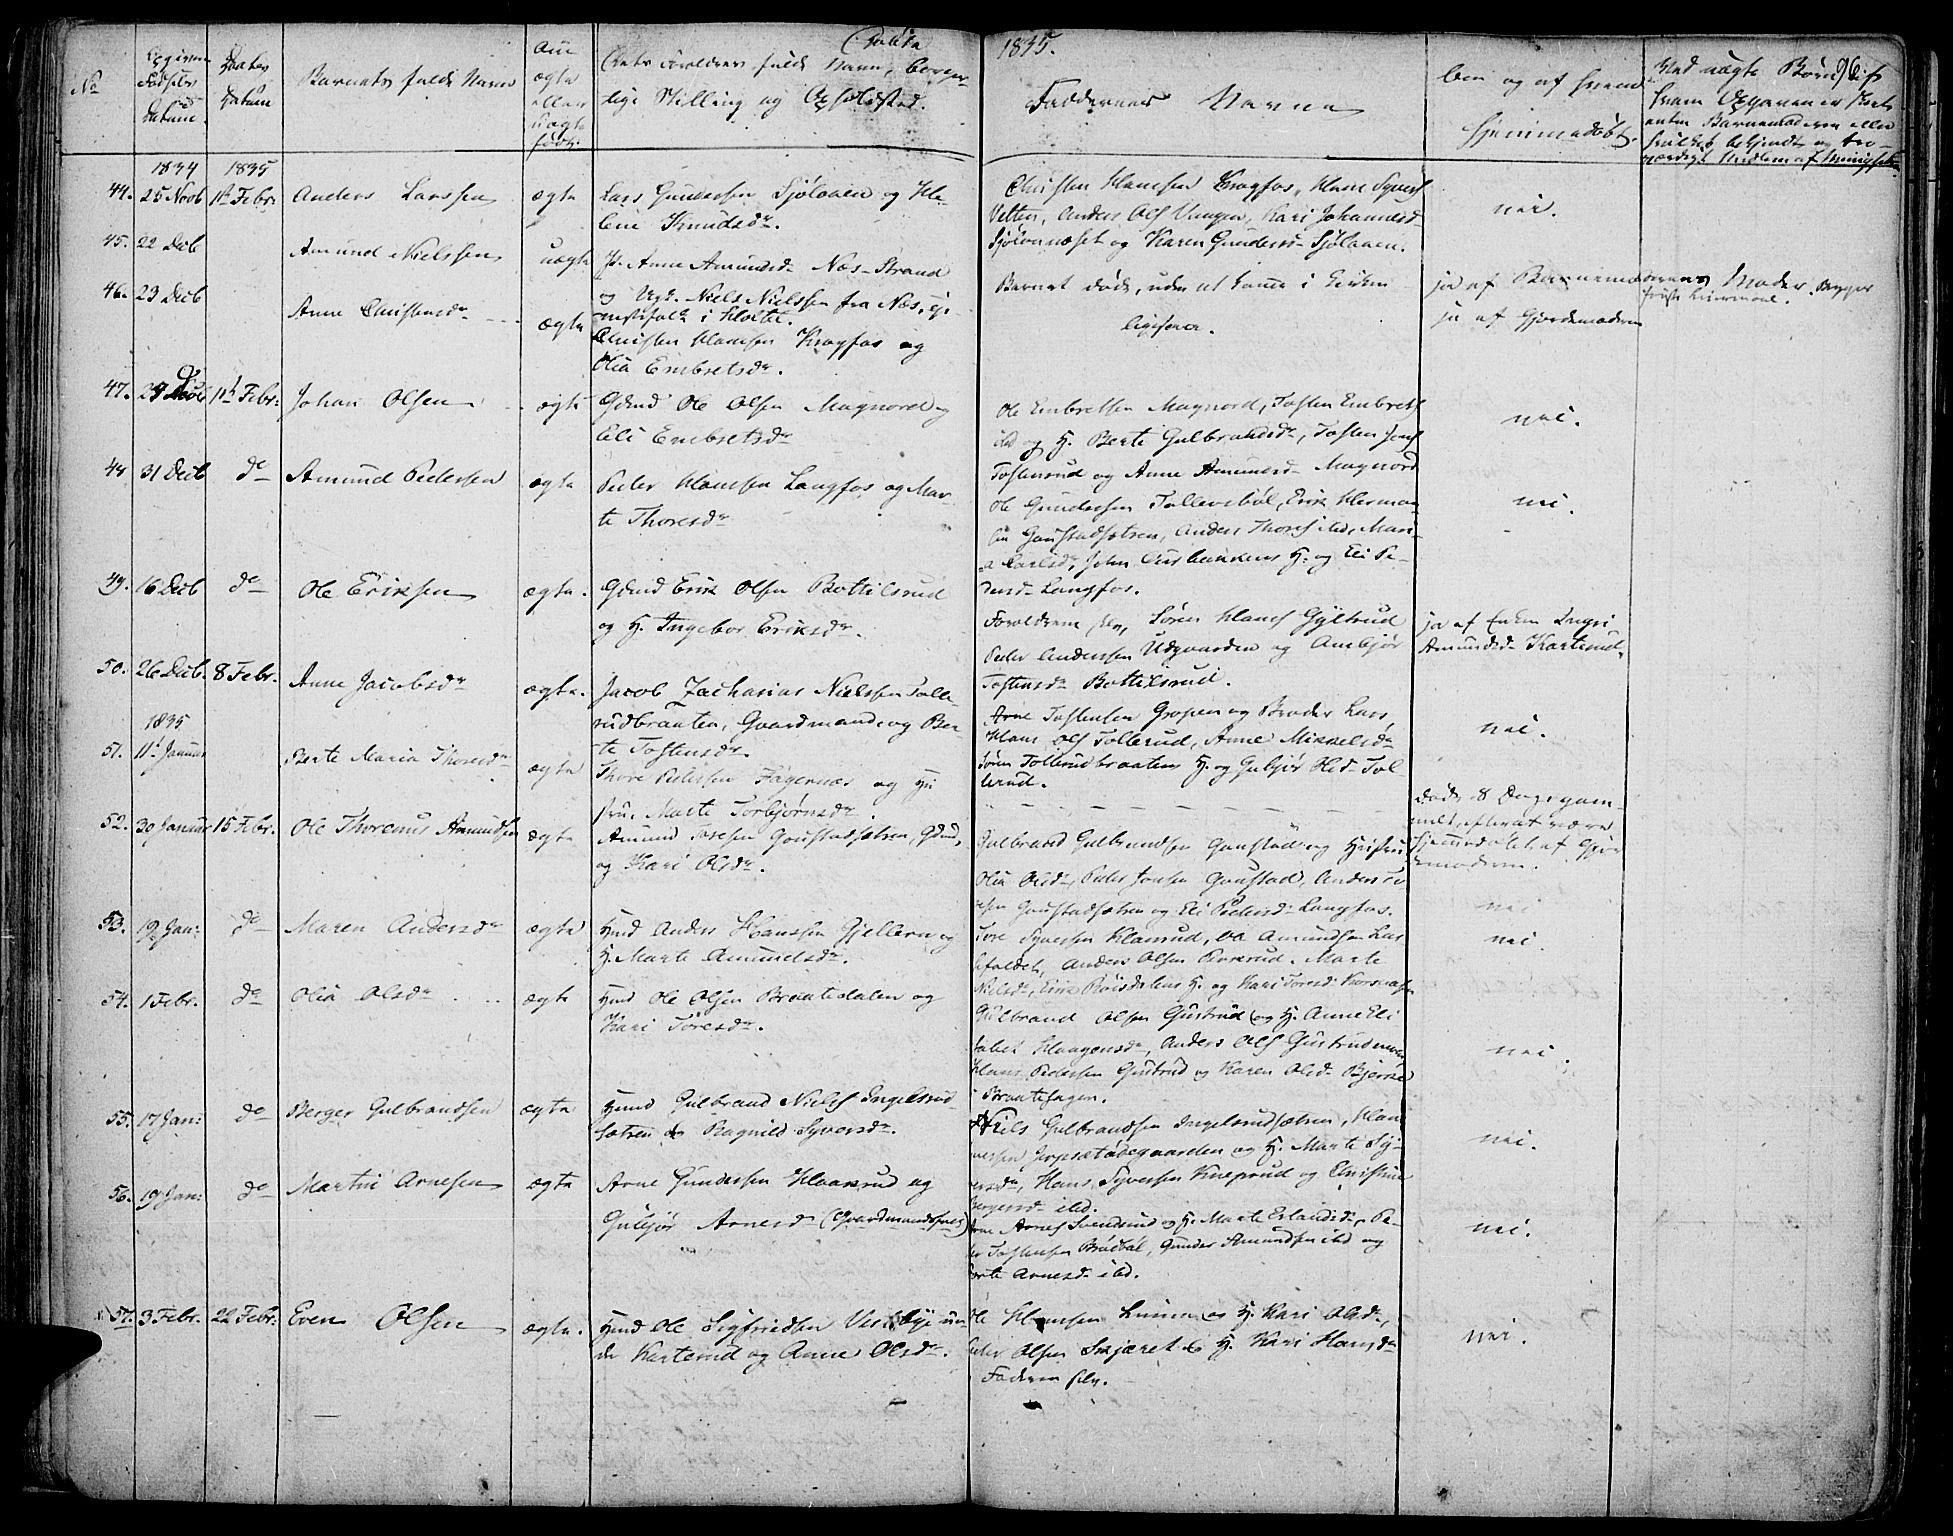 1835.
96
No
Angivne Fødsels Datum.
Daabs Datum
Barnets fulde Navn
om ægte eller uægte født.
Dets Forældres fulde Navn, borger-
lige Stilling og Opholdsted.
Faddernes Navne
om og af hvem
hjemmedøbt.
Ved uægte Børn
1834 1835
44. 25 Novb 11te Febr: Anders Larssen ægte Lars Gundersen Sjølaaen og He-
lene Knudsdr.
Christen Hansen Kragfos, Hans Syvers
Velten, Anders Ols Vangen, Kari Johannesd
Sjølaanæset og Karen Gundersd Sjølaaen.
nei.
45. 22 Decb Amund Nielssen uægte P. Anne Amundsd Næs-Strand
og Ugk. Niels Nielssen fra Næs,
Barnet døde, uden at komme i Kirken
ja af Barnemoderens Moder.
46. 23 Decb Anne Christensdr ægte Christen Hansen Kragfos og
Olia Embretsdr.
ligesaa.
ja af Gjordemoderen
47. 29 Decb 11te Febr: Johan Olsen ægte Gdmd Ole Olsen Magnord og
Eli Embretsdr
Ole Embretsen Magnord, Tosten Embrets
ibd og H. Berte Gulbrandsdr, Tosten Jens
Tostensrud og Anne Amundsd Magnord
nei.
48 31 Decb do Amund Pedersen ægte Peder Hansen Langfos og Mar-
te Thoresdr
Ole Gundersen Tollevsbøl, Erik Herman-
sen Goustadsætren, Anders Thores ibd, Mari-
a Carlsd, John Aurbakkens H. og Eli Pe-
dersd Langfos.
nei.
49. 16 Decb do Ole Eriksen ægte. Gdmd Erik Olsen Bottilsrud
og H. Ingebor Eriksdr.
Forældrene selv, Søren Hans Gyltrud
Peder Anderssen Udgaarden og Anbjør
Tostensdr Bottilsrud.
ja af Enken Ingri
Amundsd Karterud.
50. 26 Decb. 8 Febr. Anne Jacobsdr ægte. Jacob Zacharias Nielssen Tolle-
rudbraaten, Gaardmand, og Ber-
te Tostensdr.
Arne Tostensen Gropen og Broder Lars,
Hans Ols Tollerud, Anne Mikkelsdr
Søren Tollerudbraatens H. og Gubjør Olsd Tol-
lerud.
nei.
1835
51. 11te Januar Berte Maria Thoresdr ægte Thore Pedersen Fagernæs og Hu
stru Marte Torbjørnsdr.
døde 8 Dage gam-
melt, efterat være
hjemmedøbt af Gjor
demoderen.
52. 30 Januar 15 Febr. Ole Thorenus Amundsen ægte Amund Tosten Goustadsætren, Gdmd,
og Kari Olsdr.
Gulbrand Gulbrandsen Goustad og Hustru
Olia Olsdr, Peder Jonsen Goustad, Anders
Goustadsætren og Eli Pedersd Langfos.
nei
53. 12 Jan: do Maren Andersdr ægte Hmd Anders Hanssen Gjelleru og
H. Marte Amundsdr.
Tore Syversen Haanrud, Ole Amundsen
Anders Olsen Marte
Nielsdr, Erik Röisdalens H. og Kari Toresd
nei.
54. 1 Febr. do Olia Olsdr ægte Hmd Ole Olsen Braatedalen og
Kari Toresdr.
Gulbrand Olsen Gustrud og H. Anne Eli
sabet Haagensdr, Anders Ols Gustrud
Hans Pedersen Gustrud og Karen Olsd Bjerke
i Braatehagen.
nei.
55. 17 Jan: do Berger Gulbrandsen ægte Hmd Gulbrand Niels Ingelsrud-
sætren & Ragnild Syversdr.
Niels Gulbrandsen Ingelsrudsætren, Han
og H. Marte Sy-
versdr, Hans Syversen Kneprud og Christine
Bergersd ibd.
nei.
56. 19 Jan: do Martin Arnesen ægte Arne Gundersen Haanrud og
Gubjør Arnesd (Gaardmandsfolk)
Arne Arnes Svendsrud og H. Marte Erlandsdr, Pe-
der Tostensen Bradbøl, Gunder Amundsen ibd og
Berte Arnesd ibd.
nei.
57. 3 Febr. 22 Febr. Even Olsen ægte. Hmd Ole Sigfridsen Vestbye un-
der Karterud og Anne Olsdr.
Ole Hansen Linna og H. Kari Olsdr,
Peder Olsen Skjæret & H. Kari Hansdr
Faderen selv.
nei.